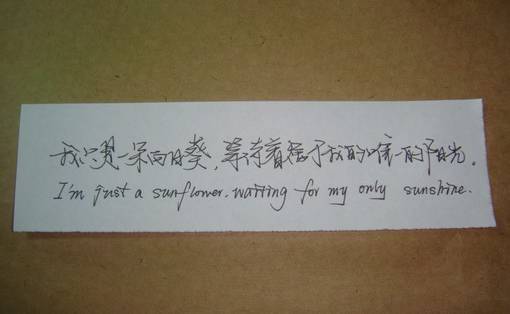 我只是一朵向日葵，等待着属于我的唯一的阳光。
I'm just a sunflower. waiting for my only sunshine.